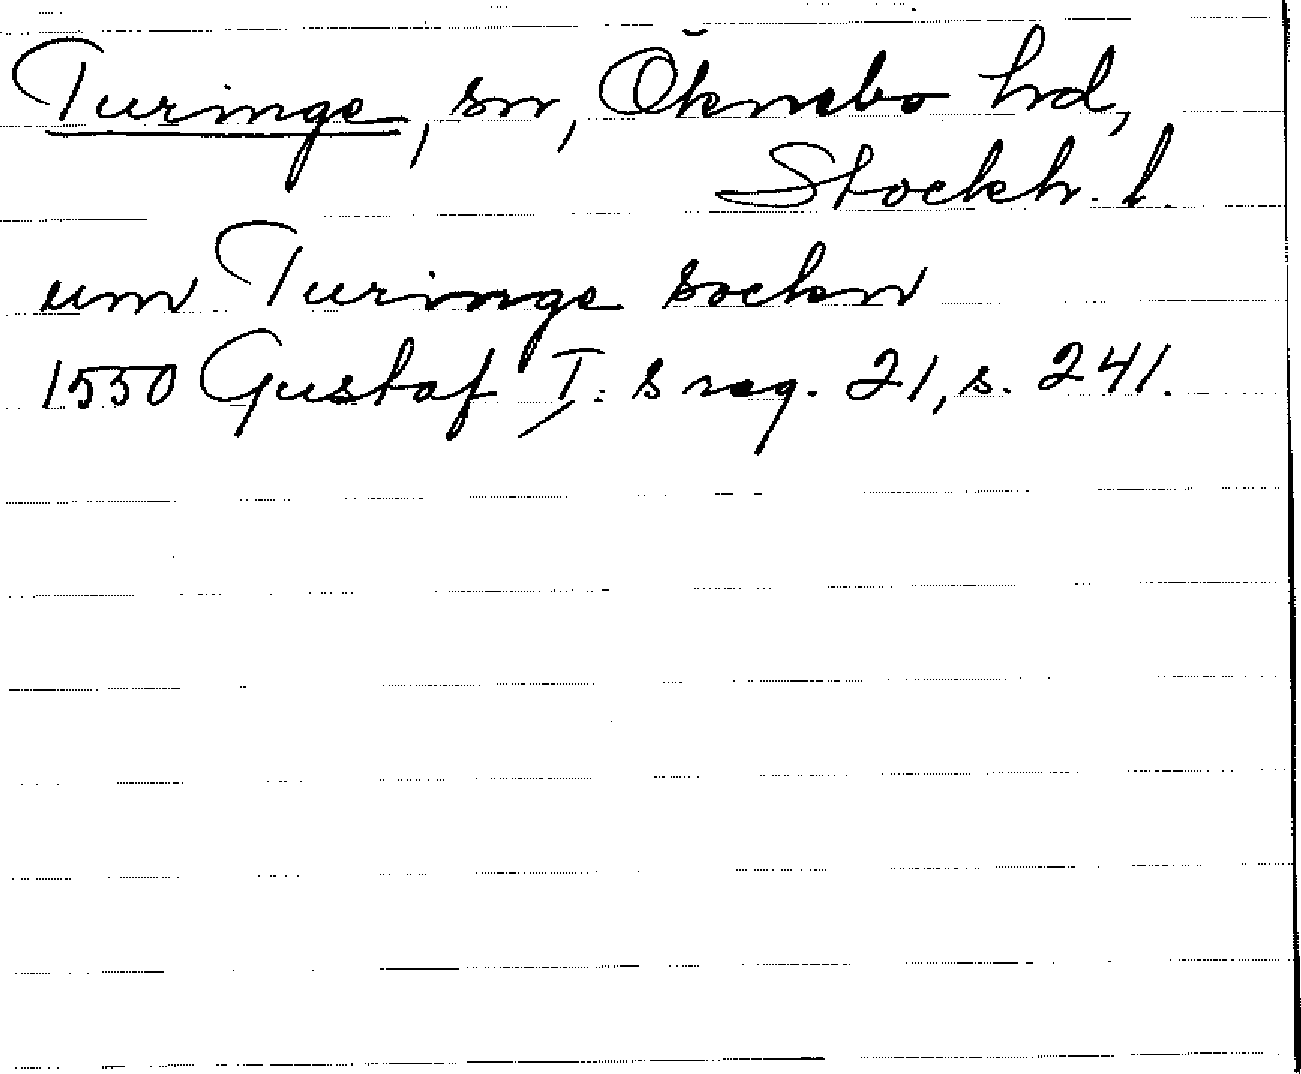 Turinge, sn, Öknebo hd,
Stockh. l.
um Turinge sockn
1550 Gustaf I:s reg. 21, s. 241.